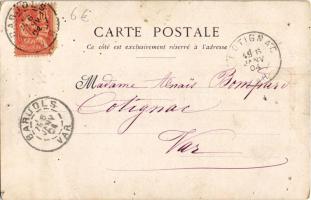 BARJOLS
6€
CARTE POSTALE
Ce côté est exclusivement réservé à l'adresse
COTIGNAC
Madame Anaïs
Cotignac
Var
BARJOLS
VAR